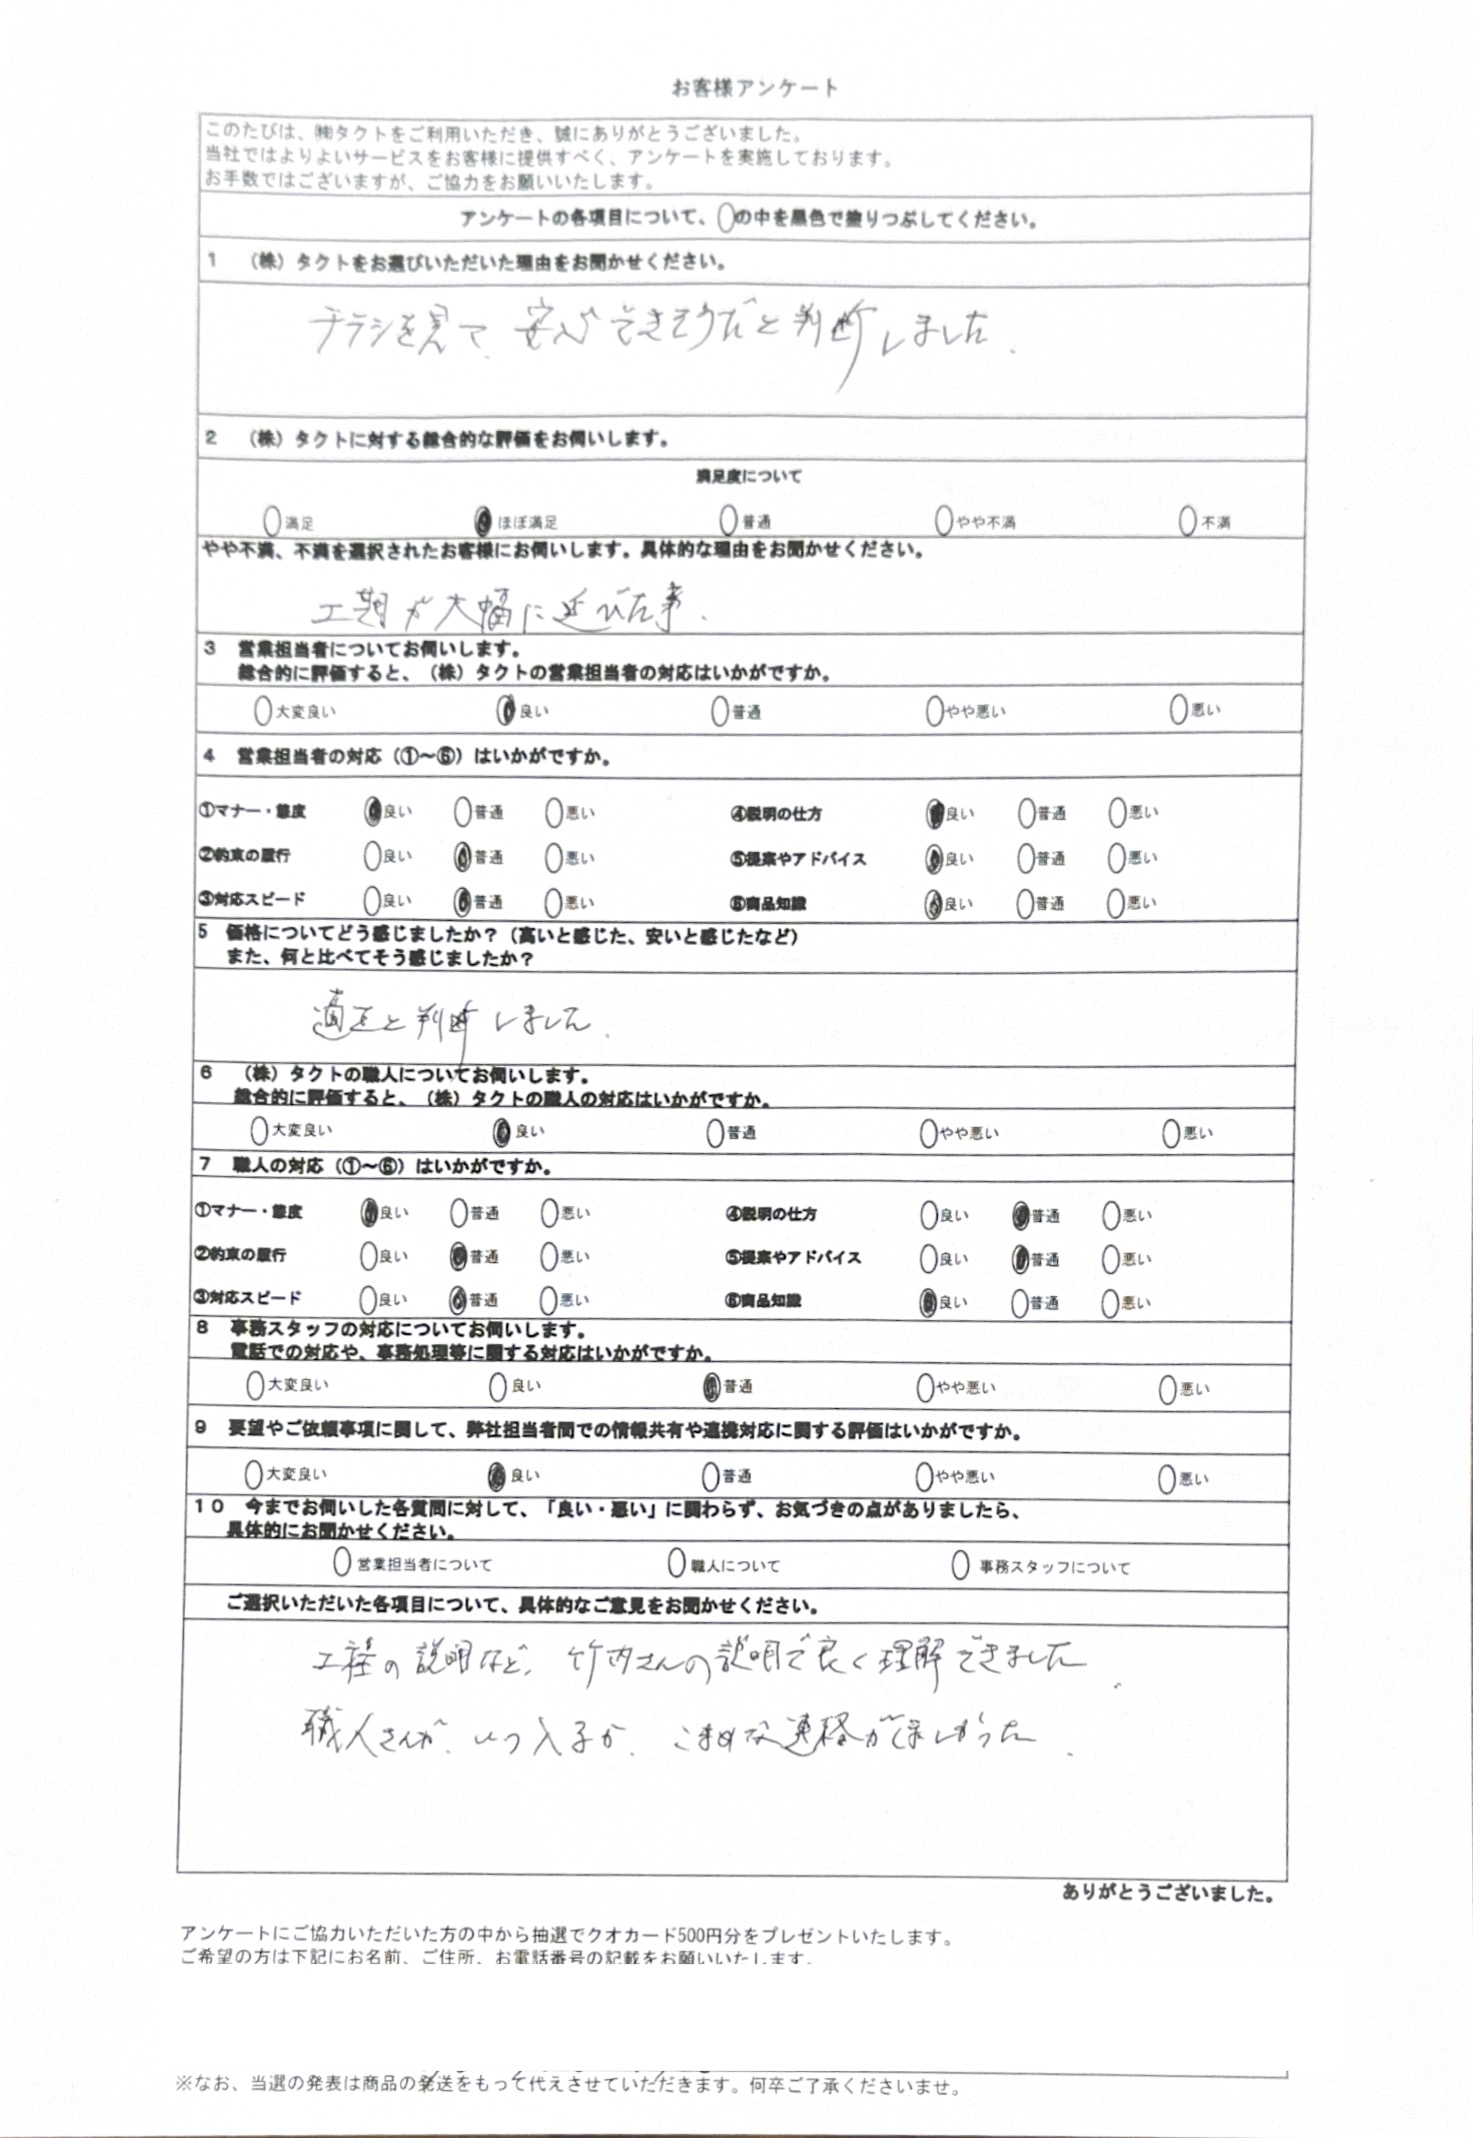 お客様アンケート
このたびは、㈱タクトをご利用いただき、誠にありがとうございました。
当社ではよりよいサービスをお客様に提供すべく、アンケートを実施しております。
お手数ではございますが、ご協力をお願いいたします。
アンケートの各項目について、○の中を黒色で塗りつぶしてください。
1 （株）タクトをお選びいただいた理由をお聞かせください。
チラシを見て、安心できそうだと判断しました．
2 （株）タクトに対する総合的な評価をお伺いします。
満足度について
満足 ほぼ満足 普通 やや不満 不満
やや不満、不満を選択されたお客様にお伺いします。具体的な理由をお聞かせください。
工期が大幅に延びた事．
3 営業担当者についてお伺いします。
総合的に評価すると、（株）タクトの営業担当者の対応はいかがですか。
大変良い 良い 普通 やや悪い 悪い
4 営業担当者の対応（①～⑥）はいかがですか。
①マナー・態度 良い 普通 悪い ④説明の仕方 良い 普通 悪い
②約束の履行 良い 普通 悪い ⑤提案やアドバイス 良い 普通 悪い
③対応スピード 良い 普通 悪い ⑥商品知識 良い 普通 悪い
5 価格についてどう感じましたか？（高いと感じた、安いと感じたなど）
また、何と比べてそう感じましたか？
適正と判断しました．
6 （株）タクトの職人についてお伺いします。
総合的に評価すると、（株）タクトの職人の対応はいかがですか。
大変良い 良い 普通 やや悪い 悪い
7 職人の対応（①～⑥）はいかがですか。
①マナー・態度 良い 普通 悪い ④説明の仕方 良い 普通 悪い
②約束の履行 良い 普通 悪い ⑤提案やアドバイス 良い 普通 悪い
③対応スピード 良い 普通 悪い ⑥商品知識 良い 普通 悪い
8 事務スタッフの対応についてお伺いします。
電話での対応や、事務処理等に関する対応はいかがですか。
大変良い 良い 普通 やや悪い 悪い
9 要望やご依頼事項に関して、弊社担当者間での情報共有や連携対応に関する評価はいかがですか。
大変良い 良い 普通 やや悪い 悪い
10 今までお伺いした各質問に対して、「良い・悪い」に関わらず、お気づきの点がありましたら、
具体的にお聞かせください。
営業担当者について 職人について 事務スタッフについて
ご選択いただいた各項目について、具体的なご意見をお聞かせください。
工程の説明など、竹内さんの説明で良く理解できました．
職人さんが、いつ入るか、こまめな連絡がほしかった．
ありがとうございました。
アンケートにご協力いただいた方の中から抽選でクオカード500円分をプレゼントいたします。
ご希望の方は下記にお名前、ご住所、お電話番号の記載をお願いいたします。
※なお、当選の発表は商品の発送をもって代えさせていただきます。何卒ご了承くださいませ。